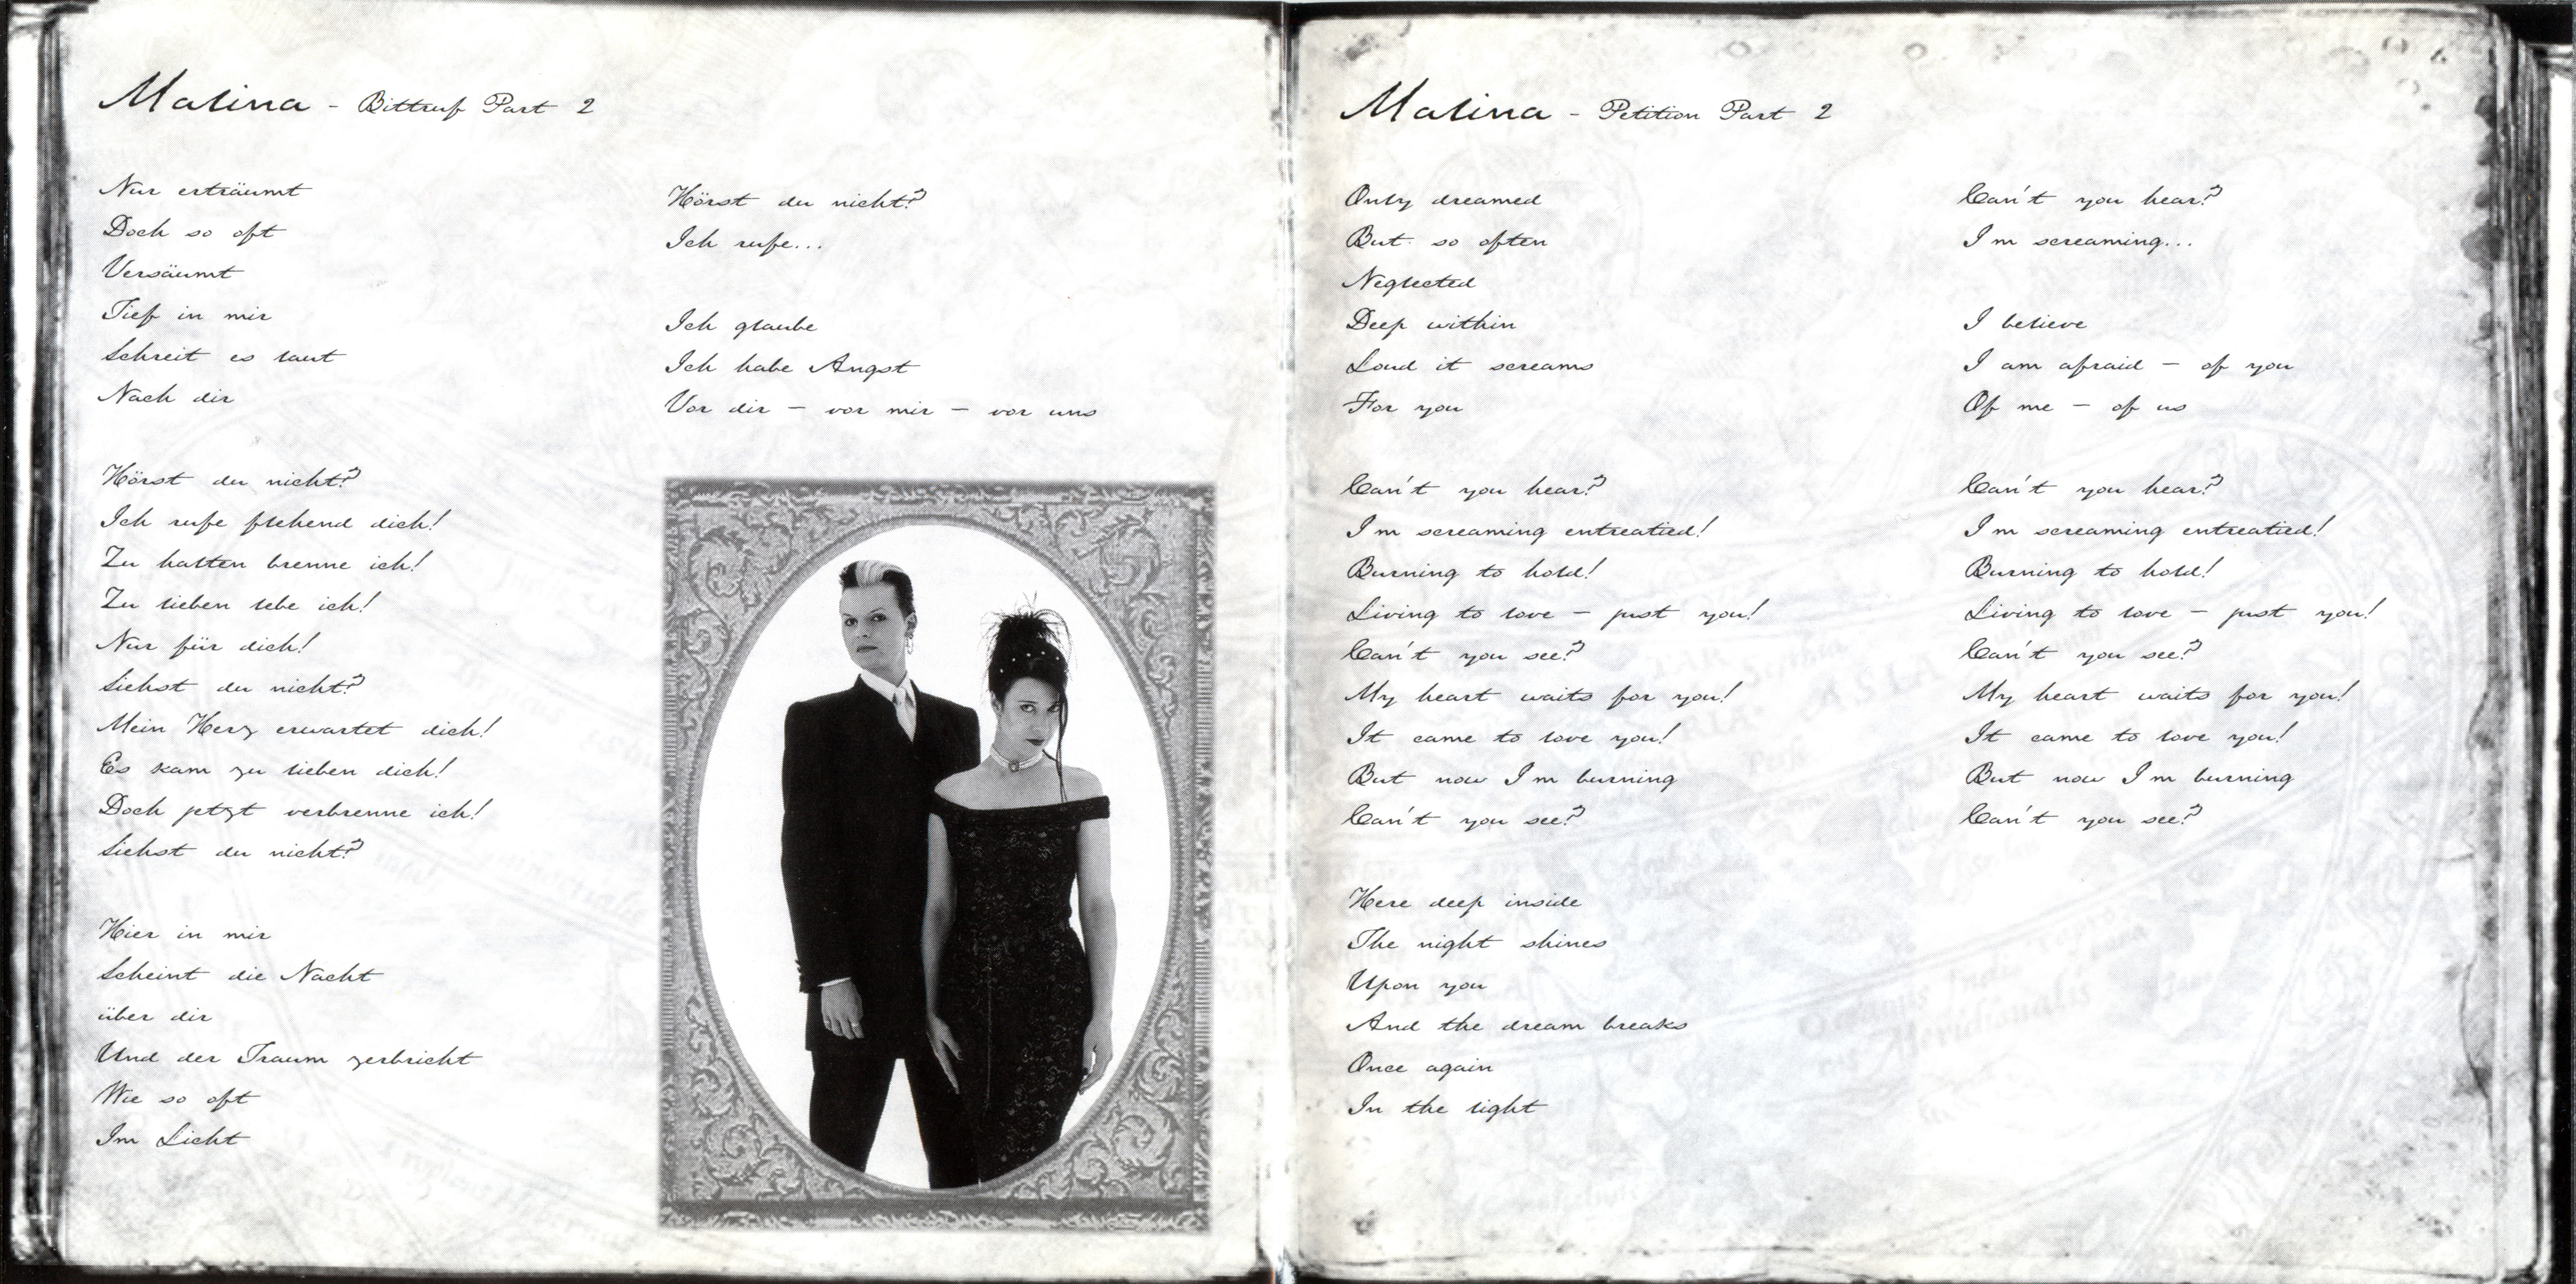 Malina - Bittruf Part 2
Nur erträumt
Doch so oft
Versäumt
Tief in mir
Schreit es laut
Nach dir
Hörst du nicht?
Ich rufe flehend dich!
Zu halten brenne ich!
Zu lieben lebe ich!
Nur für dich!
Siehst du nicht?
Mein Herz erwartet dich!
Es kam zu lieben dich!
Doch jetzt verbrenne ich!
Siehst du nicht?
Hier in mir
Scheint die Nacht
über dir
Und der Traum zerbricht
Wie so oft
Im Licht
Hörst du nicht?
Ich rufe...
Ich glaube
Ich habe Angst
Vor dir - vor mir - vor uns
Malina - Petition Part 2
Only dreamed
But so often
Neglected
Deep within
Loud it screams
For you
Can't you hear?
I'm screaming entreatied!
Burning to hold!
Living to love - just you!
Can't you see?
My heart waits for you!
It came to love you!
But now I'm burning
Can't you see?
Here deep inside
The night shines
Upon you
And the dream breaks
Once again
In the light
Can't you hear?
I'm screaming...
I believe
I am afraid - of you
Of me - of us
Can't you hear?
I'm screaming entreatied!
Burning to hold!
Living to love - just you!
Can't you see?
My heart waits for you!
It came to love you!
But now I'm burning
Can't you see?